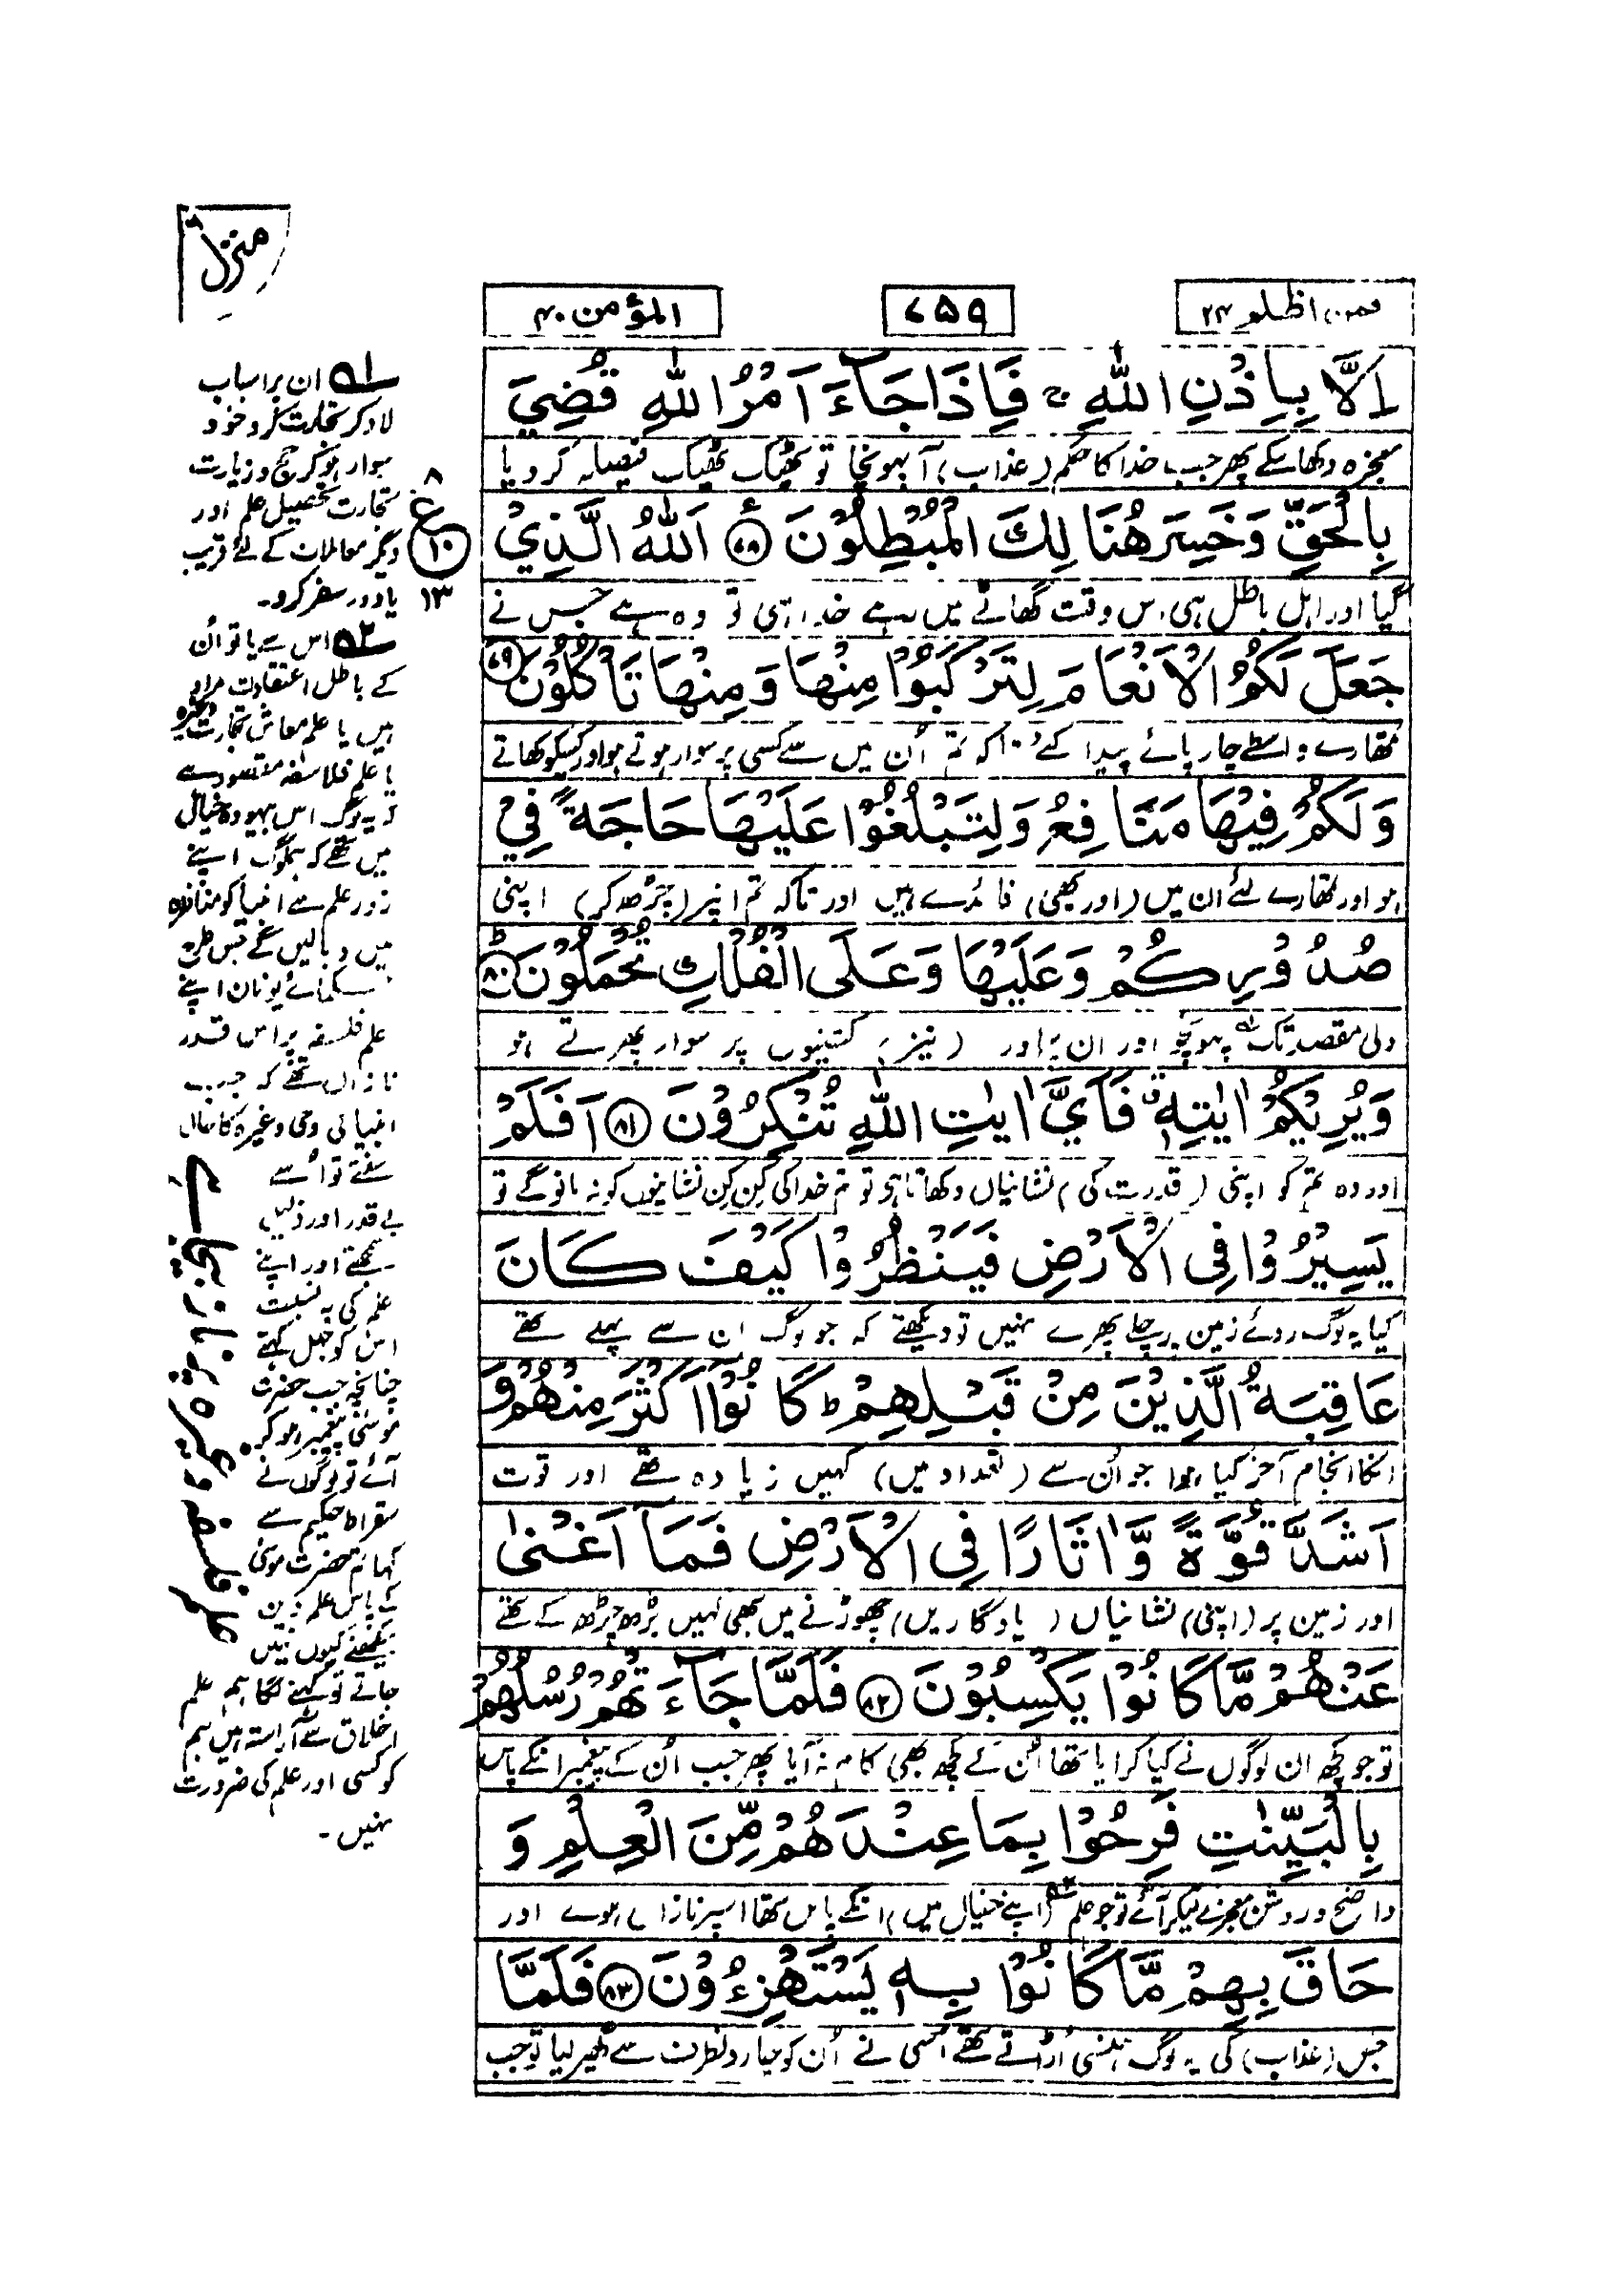 فمن اظلم ۲۴
۷۵۹
المؤمن ۴۰
منزل
اِلَّا بِاِذْنِ اللّٰهِ ۚ فَاِذَا جَآءَ اَمْرُ اللّٰهِ قُضِيَ
معجزہ دکھا سکے پھر جب خدا کا حکم (عذاب) آ پہونچا تو ٹھیک ٹھیک فیصلہ کر دیا
بِالْحَقِّ وَخَسِرَ هُنَالِكَ الْمُبْطِلُوْنَ ﴿۷۸﴾ اَللّٰهُ الَّذِيْ
گیا اور اہل باطل ہی اس وقت گھاٹے میں رہے خدا ہی تو وہ ہے جس نے
جَعَلَ لَكُمُ الْاَنْعَامَ لِتَرْكَبُوْا مِنْهَا وَمِنْهَا تَاْكُلُوْنَ ﴿۷۹﴾
تمھارے واسطے چارپائے پیدا کئے تاکہ تم اُن میں سے کسی پر سوار ہوتے ہو اور کسیکو کھاتے
وَلَكُمْ فِيْهَا مَنَافِعُ وَلِتَبْلُغُوْا عَلَيْهَا حَاجَةً فِيْ
ہو اور تمھارے لئے ان میں (اور بھی) فائدے ہیں اور تاکہ تم انپر (چڑھ کر) اپنی
صُدُوْرِكُمْ وَعَلَيْهَا وَعَلَى الْفُلْكِ تُحْمَلُوْنَ ﴿۸۰﴾
دلی مقصد تک پہونچو اور ان پر اور (نیز) کشتیوں پر سوار پھرتے ہو
وَيُرِيْكُمْ اٰيٰتِهٖ ۖ فَاَيَّ اٰيٰتِ اللّٰهِ تُنْكِرُوْنَ ﴿۸۱﴾ اَفَلَمْ
اور وہ تم کو اپنی (قدرت کی) نشانیاں دکھاتا ہی تو تم خدا کی کِن کِن نشانیوں کو نہ مانو گے تو
يَسِيْرُوْا فِى الْاَرْضِ فَيَنْظُرُوْا كَيْفَ كَانَ
کیا یہ لوگ روئے زمین پر چلے پھرے نہیں تو دیکھتے کہ جو لوگ ان سے پہلے تھے
عَاقِبَةُ الَّذِيْنَ مِنْ قَبْلِهِمْ ؕ كَانُوْۤا اَكْثَرَ مِنْهُمْ وَ
انکا انجام آخر کیا ہوا جو اُن سے (تعداد میں) کہیں زیادہ تھے اور قوت
اَشَدَّ قُوَّةً وَّاٰثَارًا فِى الْاَرْضِ فَمَاۤ اَغْنٰى
اور زمین پر (اپنی) نشانیاں (یادگاریں) چھوڑنے میں بھی کہیں بڑھ چڑھ کے تھے
عَنْهُمْ مَّا كَانُوْا يَكْسِبُوْنَ ﴿۸۲﴾ فَلَمَّا جَآءَتْهُمْ رُسُلُهُمْ
تو جو کچھ ان لوگوں نے کیا کرایا تھا اُن کے کچھ بھی کام نہ آیا پھر جب اُن کے پیغمبر انکے پاس
بِالْبَيِّنٰتِ فَرِحُوْا بِمَا عِنْدَهُمْ مِّنَ الْعِلْمِ وَ
واضح و روشن معجزے لیکر آئے تو جو علم (اپنے خیال میں) انکے پاس تھا اسپر نازاں ہوے اور
حَاقَ بِهِمْ مَّا كَانُوْا بِهٖ يَسْتَهْزِءُوْنَ ﴿۸۳﴾ فَلَمَّا
جس (عذاب) کی یہ لوگ ہنسی اڑاتے تھے اُسی نے اُن کو چاروں طرف سے گھیر لیا تو جب
۸
ع
۱۰
۱۳
۱ ان پر اسباب
لاد کر تجارت کرو خود
سوار ہو کر حج و زیارت
تجارت تحصیل علم اور
دیگر معاملات کے لئے قریب
یا دور سفر کرو۔
۲ اس سے یا تو اُن
کے باطل اعتقادات مراد
ہیں یا علم معاش تجارت وغیرہ
یا علم فلاسفہ مقصود ہے
کہ یہ لوگ اس بیہودہ خیال
میں تھے کہ ہملوگ اپنے
زور علم سے انبیا کو مناظرہ
میں دبا لیں گے جس طرح
حکمائے یونان اپنے
علم فلسفہ پر اس قدر
نازاں تھے کہ جب
انبیا کی وحی وغیرہ کا حال
سنتے تو اُسے
بے قدر اور ذلیل
سمجھتے اور اپنے
علم کی بہ نسبت
اس کو جہل کہتے
چنانچہ جب حضرت
موسٰی پیغمبر ہو کر
آئے تو لوگوں نے
سقراط حکیم سے
کہا تم حضرت موسٰی
کے پاس علم دین
سیکھنے کیوں نہیں
جاتے تو کہنے لگا ہم علم
اخلاق سے آراستہ ہیں ہم
کو کسی اور علم کی ضرورت
نہیں۔
علم فلسفہ وغیرہ پر ناز بیجا ہے